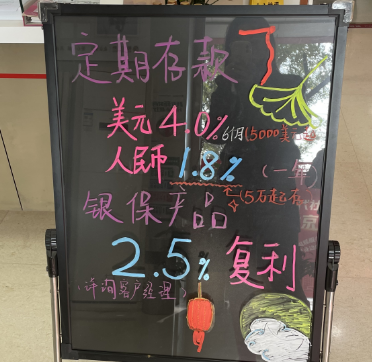 定期存款
美元 4.0% 6个月 (5000美元起
人民币 1.8% (一年)
(5万起存
银保产品
2.5% 复利
(详询客户经理)